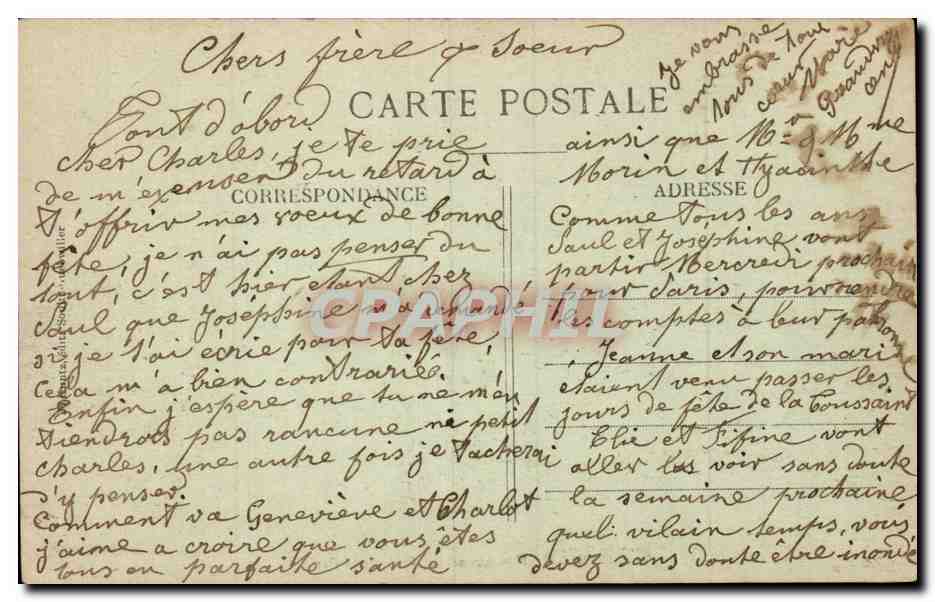 Chers frère & Soeur
Tout d'abord
CARTE POSTALE
cher Charles, je te prie
de m'exenser du retard à
CORRESPONDANCE
t'offrir mes voeux de bonne
fête, je n'ai pas penser du
tout, c'est hier etant chez
Paul que Joséphine m'a demandé
si je t'ai écrie pour ta fête,
Cela m'a bien contrarié
Enfin j'espère que tu ne m'en
tiendras pas rancune ni petit
charles, une autre fois je tacherai
d'y penser.
Comment va Geneviève et Charlot
j'aime a croire que vous êtes
tous en parfaite santé
ainsi que Mr & Mme
Morin et Hyacinthe
ADRESSE
Comme tous les ans
Paul et Joséphine vont
partir Mercredi prochain
pour Paris, pour rendre
les comptes à leur patronne
Jeanne et son mari
etaient venu passer les
jours de fête de la Toussaint
Elie et Fifine vont
aller les voir sans doute
la semaine prochaine
quel vilain temps, vous
devez sans doute être inondé
Je vous
embrasse
tous de tout
coeur
Marie
CPAPHIL